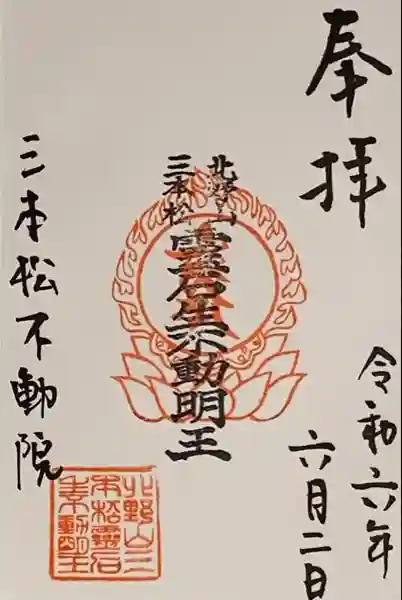 奉拝
令和六年
六月二日
北野山
三本松
霊石生不動明王
三本松不動院
北野山三
本松霊石